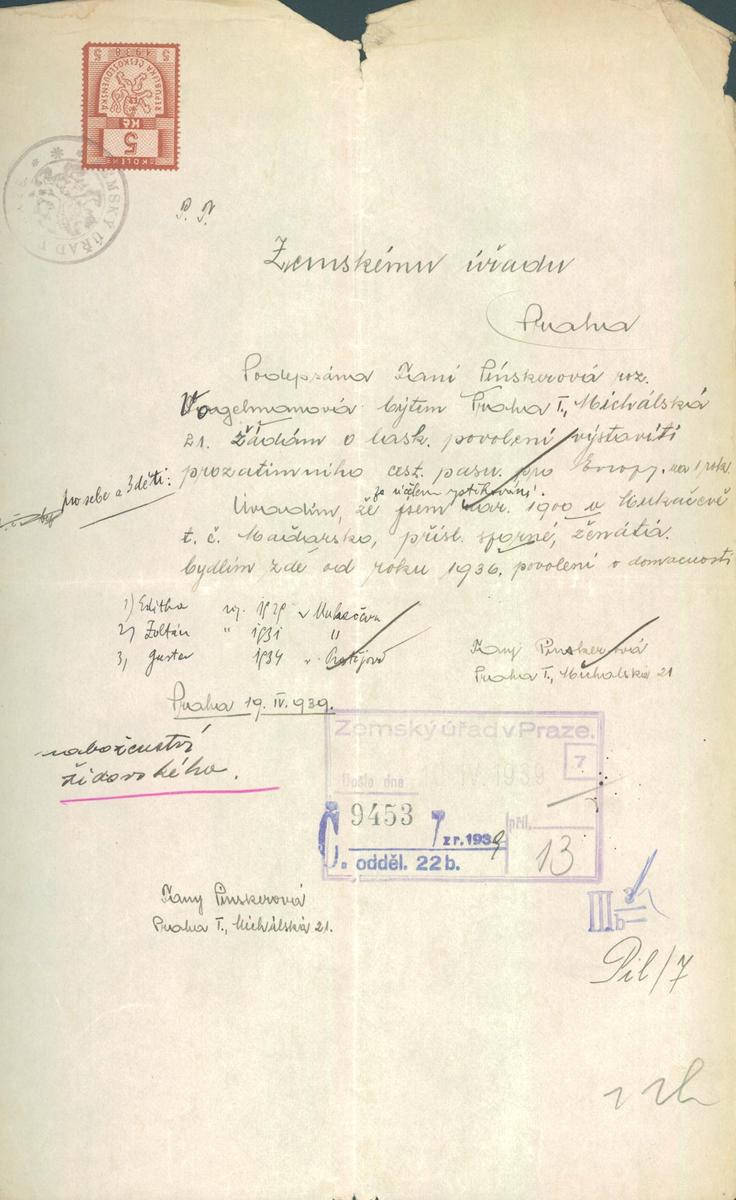 5 1938 5
REPUBLIKA ČESKOSLOVENSKÁ
Kč
5
KOLEK
ZEMSKÝ ÚŘAD
P. T.
Zemskému úřadu
Praha
Podepsána Fani Pinskerová roz.
Vogelmanová bytem Praha I., Michálská
21. žádám o lask. povolení výstavíti
prozatimního cest. pasu pro Evropy, na 1 rok
pro sebe a 3 děti:
za účelem vystěhování.
Uvadím, že jsem nar. 1900 v Mukačevě
t. č. Maďarsko, přísl. sporné, ženátiá.
bydlím zdé od roku 1936. povolení o domacnosti
1) Editha nar. 1929 v Mukačevu
2) Zoltán " 1931 "
3) Gustav 1934 v Prostějově
Fany Pinskerová
Praha I., Michalská 21
Praha 19. IV. 939.
náboženství
židovského.
Zemský úřad v Praze.
7
Došlo dne IV. 1939
Č. 9453 z r. 1939
příl. 13
odděl. 22b.
Fany Pinskerová
Praha I., Michálská 21.
III b
Pil/7